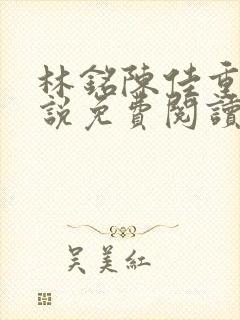 林銘陳佳重
說免費閱讀
吴美紅